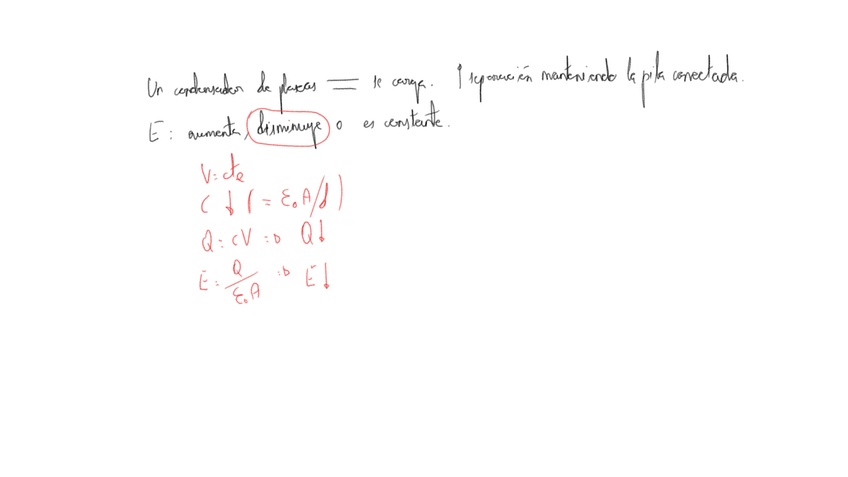 Un condensador de placas = se carga. ↑ separación manteniendo la pila conectada.
E: aumenta, disminuye o es constante.
V=cte
C ↓ (= ε₀A/d)
Q = CV => Q↓
E = Q/ε₀A => E↓